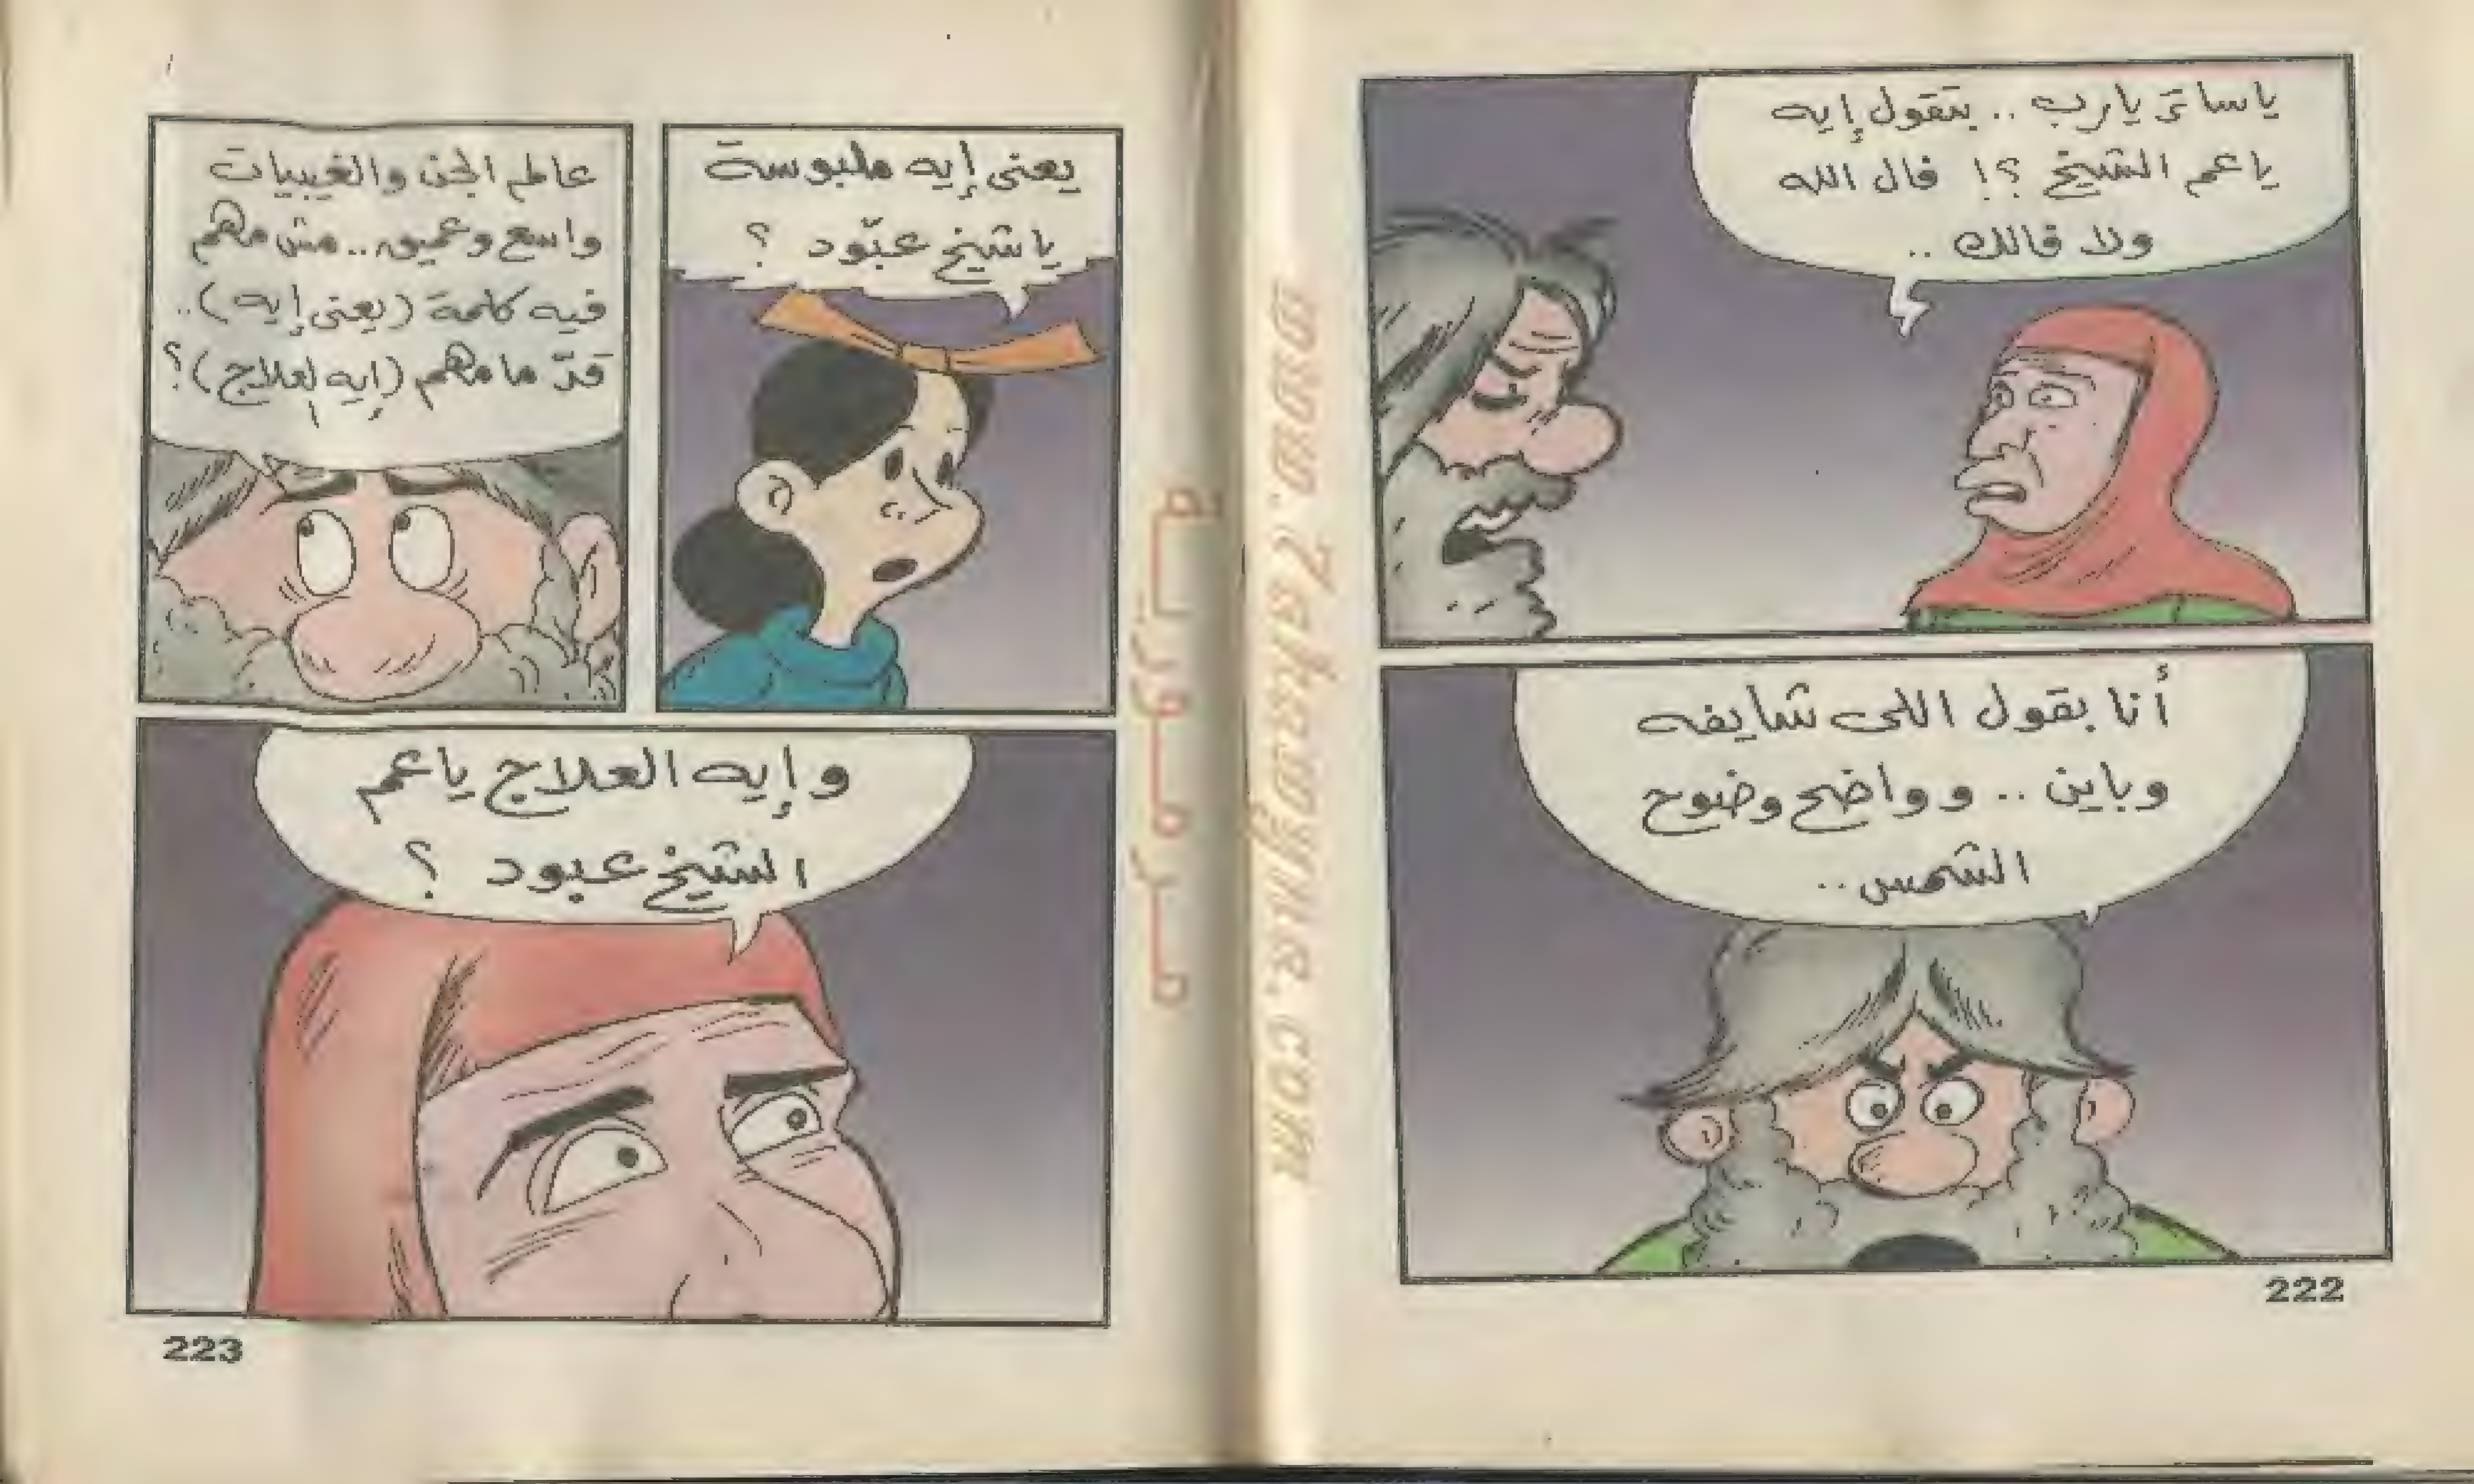 ياساتر يارب .. بتقول إيه
ياعم الشيخ ؟! فال الله
ولا فالك ..
أنا بقول اللى شايفه
وباين .. وواضح وضوح
الشمس ..
222
يعنى إيه ملبوسة
ياشيخ عبّود ؟
عالم الجن والغيبيات
واسع وعميق .. مش مهم
فيه كلمة (يعنى إيه) ..
قدّ ما مهم (إيه العلاج) ؟
وإيه العلاج ياعم
الشيخ عبود ؟
223
مرمورية